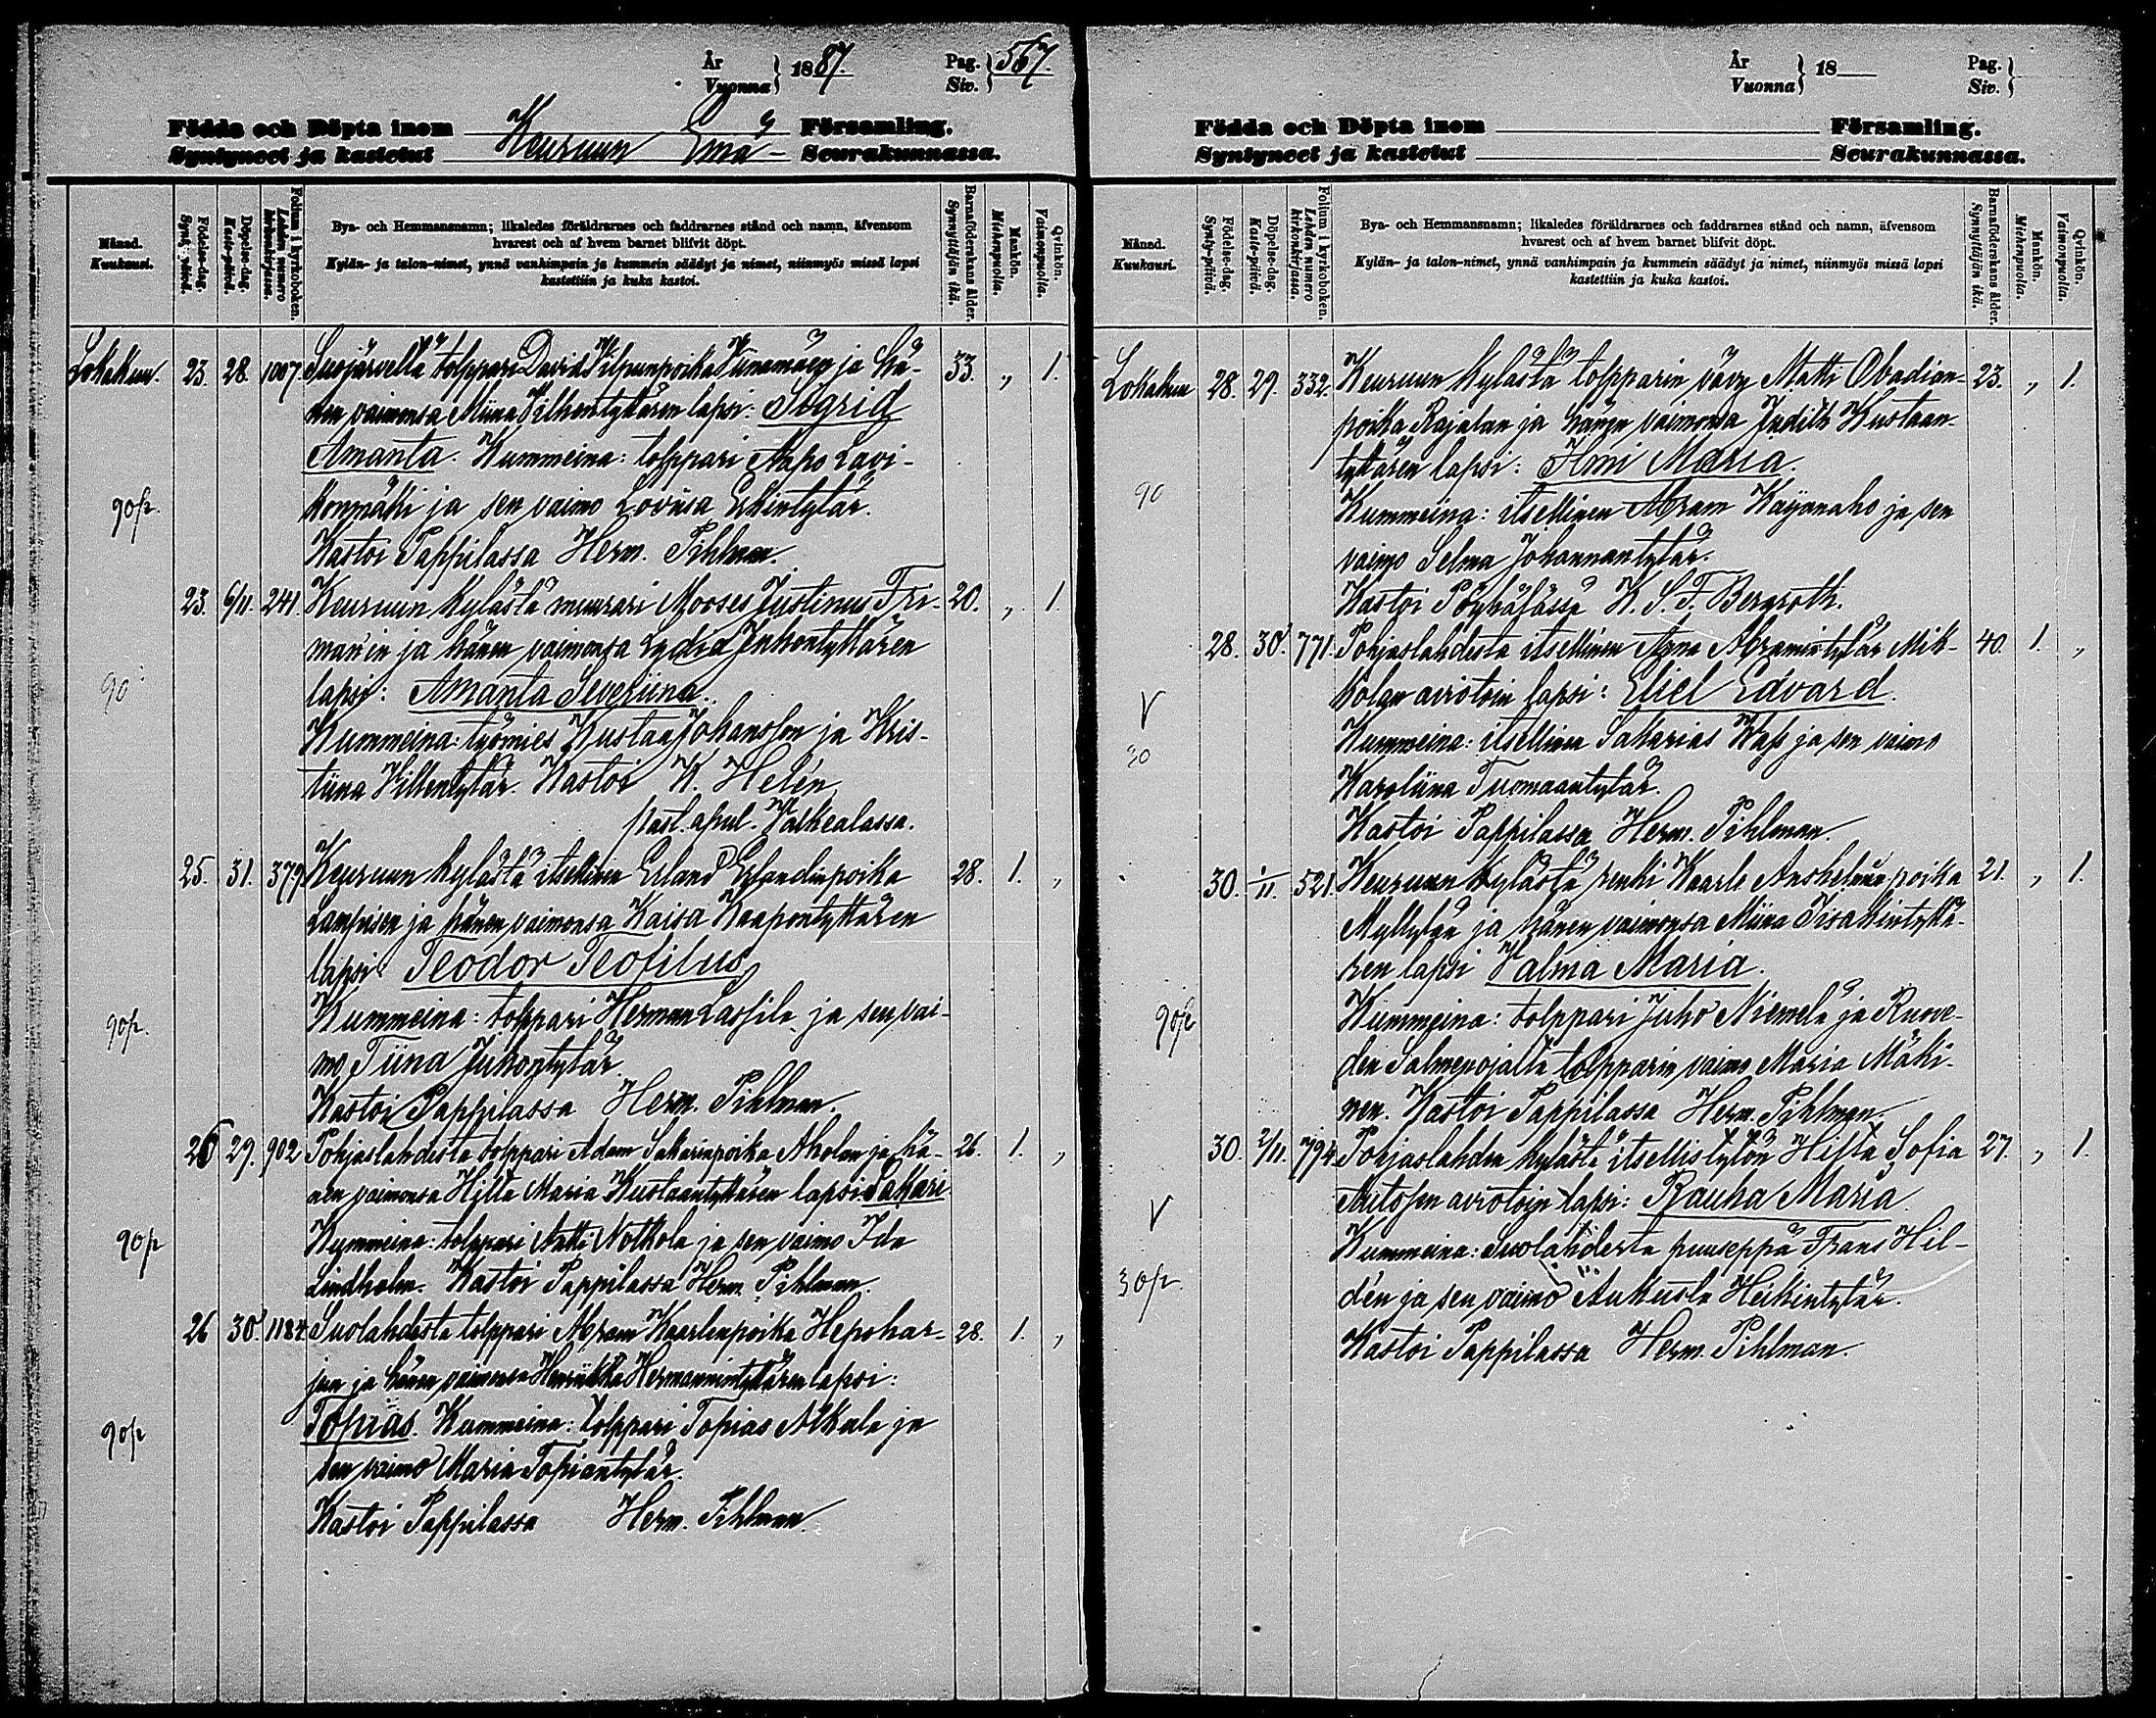 År
Vuonna } 1887.
Pag.
Siv. } 567.
Födda och Döpta inom
Syntyneet ja kastetut
Keuruun Emä-
Församling.
Seurakunnassa.
Månad.
Kuukausi.
Födelse-dag.
Synty-päivä.
Döpelse-dag.
Kaste-päivä.
Folium i kyrkoboken.
Lehden numero
kirkonkirjassa.
Bya- och Hemmansnamn; likaledes föräldrarnes och faddrarnes stånd och namn, äfvensom
hvarest och af hvem barnet blifvit döpt.
Kylän- ja talon-nimet, ynnä vanhimpain ja kummein säädyt ja nimet, niinmyös missä lapsi
kastettiin ja kuka kastoi.
Barnaföderskans ålder.
Synnyttäjän ikä.
Mankön.
Miehenpuolta.
Qvinkön.
Vaimonpuolta.
Lokakuu. 23. 28. 1007. Suojärveltä torppari David Vilpunpoika Viinamäen ja hä- 33. „ 1.
nen vaimonsa Miina Vilhontyttären lapsi: Sigrid
Amanta. Kummeina: torppari Aapo Lavi-
90p. konmäki ja sen vaimo Loviisa Erkintytär.
Kastoi Pappilassa Herm. Pihlman.
23. 6/11. 241. Keuruun kylästä muurari Mooses Justinus Fri- 20. „ 1.
manin ja hänen vaimonsa Lydia Juhontyttären
90 lapsi: Amanta Severiina.
Kummeina: työmies Kustaa Johansson ja Kris-
tiina Villentytär. Kastoi K. Helén,
past. apul. Valkealassa.
25. 31. 379. Keuruun kylästä itsellinen Erland Erlandinpoika 28. 1. „
ja hänen vaimonsa Kaisa Kaapontyttären
lapsi: Teodor Teofilus
90p. Kummeina: torppari Herman Lassila ja sen vai-
mo Tiina Juhontytär.
Kastoi Pappilassa Herm. Pihlman.
26 29. 902 Pohjaslahdesta torppari Adam Sakarinpoika Aholan ja hä- 26. 1. „
nen vaimonsa Hilta Maria Kustaantyttären lapsi Sakari
90p Kummeina: torppari Antti Notkola ja sen vaimo Ida
Lindholm. Kastoi Pappilassa Herm. Pihlman.
26 30. 1184. Suolahdesta torppari Abram Kaarlenpoika Hepohar- 28. 1. „
jun ja hänen vaimonsa Henriikka Hermannintyttären lapsi:
90p Topias. Kummeina: torppari Topias Alkula ja
sen vaimo Maria Topiantytär.
Kastoi Pappilassa Herm. Pihlman.
År
Vuonna } 18
Pag.
Siv. }
Födda och Döpta inom
Syntyneet ja kastetut
Församling.
Seurakunnassa.
Månad.
Kuukausi.
Födelse-dag.
Synty-päivä.
Döpelse-dag.
Kaste-päivä.
Folium i kyrkoboken.
Lehden numero
kirkonkirjassa.
Bya- och Hemmansnamn; likaledes föräldrarnes och faddrarnes stånd och namn, äfvensom
hvarest och af hvem barnet blifvit döpt.
Kylän- ja talon-nimet, ynnä vanhimpain ja kummein säädyt ja nimet, niinmyös missä lapsi
kastettiin ja kuka kastoi.
Barnaföderskans ålder.
Synnyttäjän ikä.
Mankön.
Miehenpuolta.
Qvinkön.
Vaimonpuolta.
Lokakuu 28. 29. 332. Keuruun kylästä torpparin vävy Matti Obadian- 23. „ 1.
poika Rajalan ja hänen vaimonsa Judith Kustaan-
tyttären lapsi: Ilmi Maria.
90 Kummeina: itsellinen Abram Käyänaho ja sen
vaimo Selma Johannantytär.
Kastoi K. S. F. Bergroth.
28. 30. 771. Pohjaslahdesta itsellinen Anna Abramintytär Mik- 40. 1. „
V kolan aviotoin lapsi: Eliel Edvard.
30 Kummeina: itsellinen Sakarias ja sen vaimo
Karoliina Tuomaantytär.
Kastoi Pappilassa Herm. Pihlman.
30. 1/11. 521. Keuruun kylästä renki Kaarle Anshelminpoika 21. „ 1.
Myllylän ja hänen vaimonsa Miina Iisakintyttä-
ren lapsi Valma Maria.
90p Kummeina: torppari Juho Niemelä ja Ruove-
den Salmenojalta torpparin vaimo Maria Mäki-
nen. Kastoi Pappilassa Herm. Pihlman.
30. 2/11. 794. Pohjaslahden kylästä itsellistytön Hilta Sofia 27. „ 1.
V aviotoin lapsi: Rauha Maria.
Kummeina: Suolahdesta puuseppä Frans Hil-
30p. dén ja sen vaimo Aukusta Heikintytär.
Kastoi Pappilassa Herm. Pihlman.